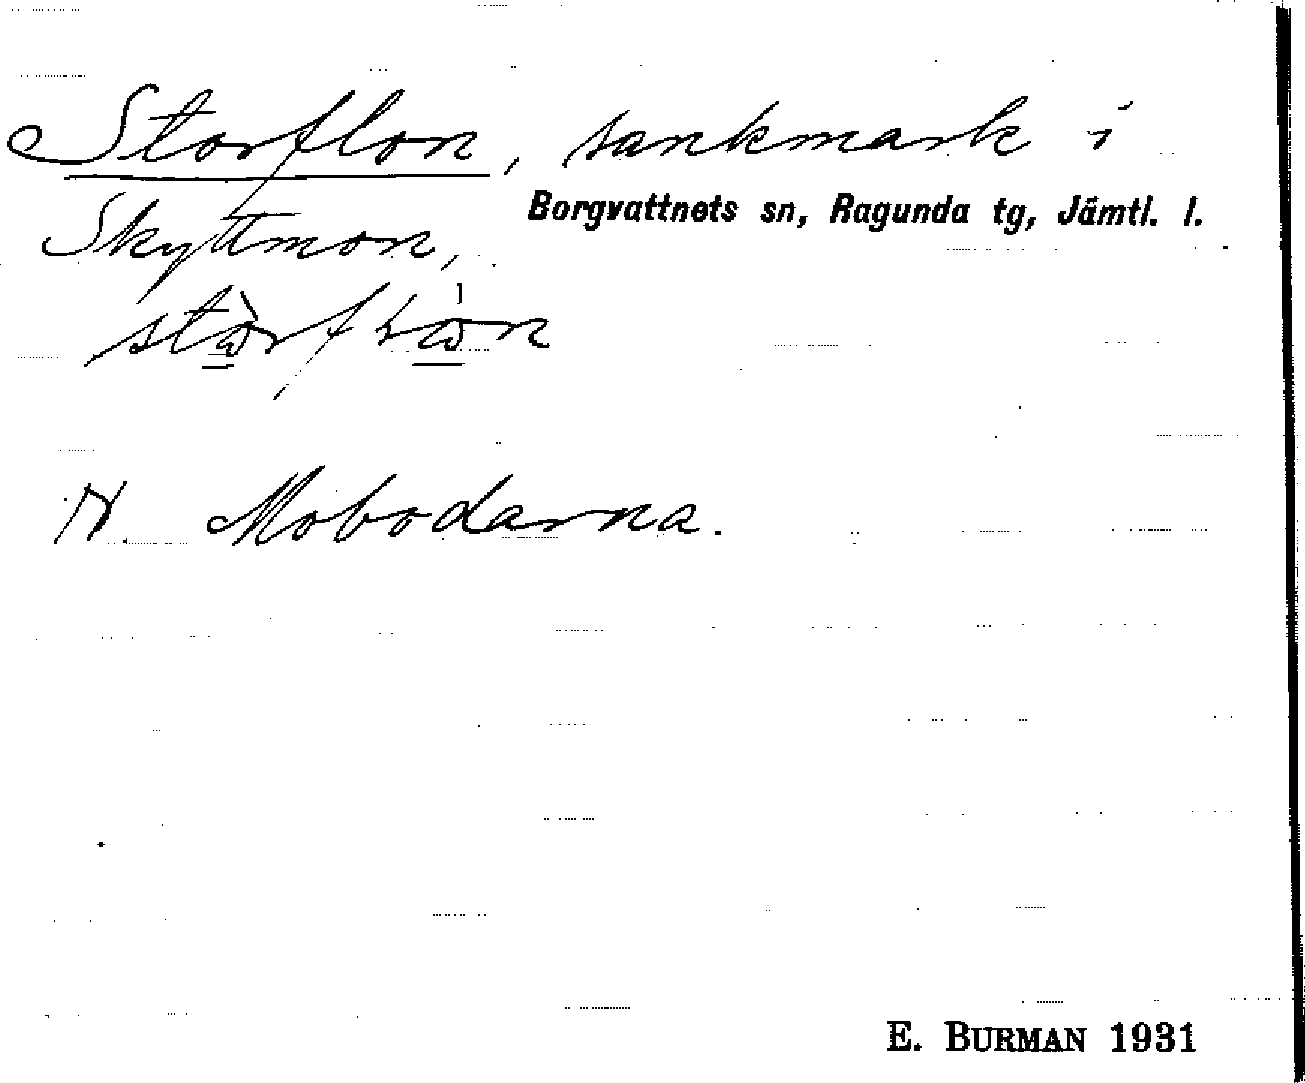 Storflon, sankmark i
Borgvattnets sn, Ragunda tg, Jämtl. l.
Skyttmon,
N. Mobodarna.
E. BURMAN 1931